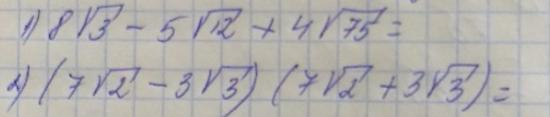 1) 8√3 - 5√12 + 4√75 =
2) (7√2 - 3√3) (7√2 + 3√3) =